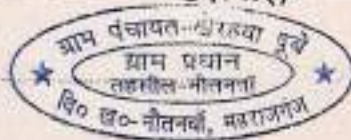 ग्राम पंचायत-अरहवा पूवे
ग्राम प्रधान
तहसील-नौतनवाँ
वि० ख०-नौतनवाँ, महराजगंज